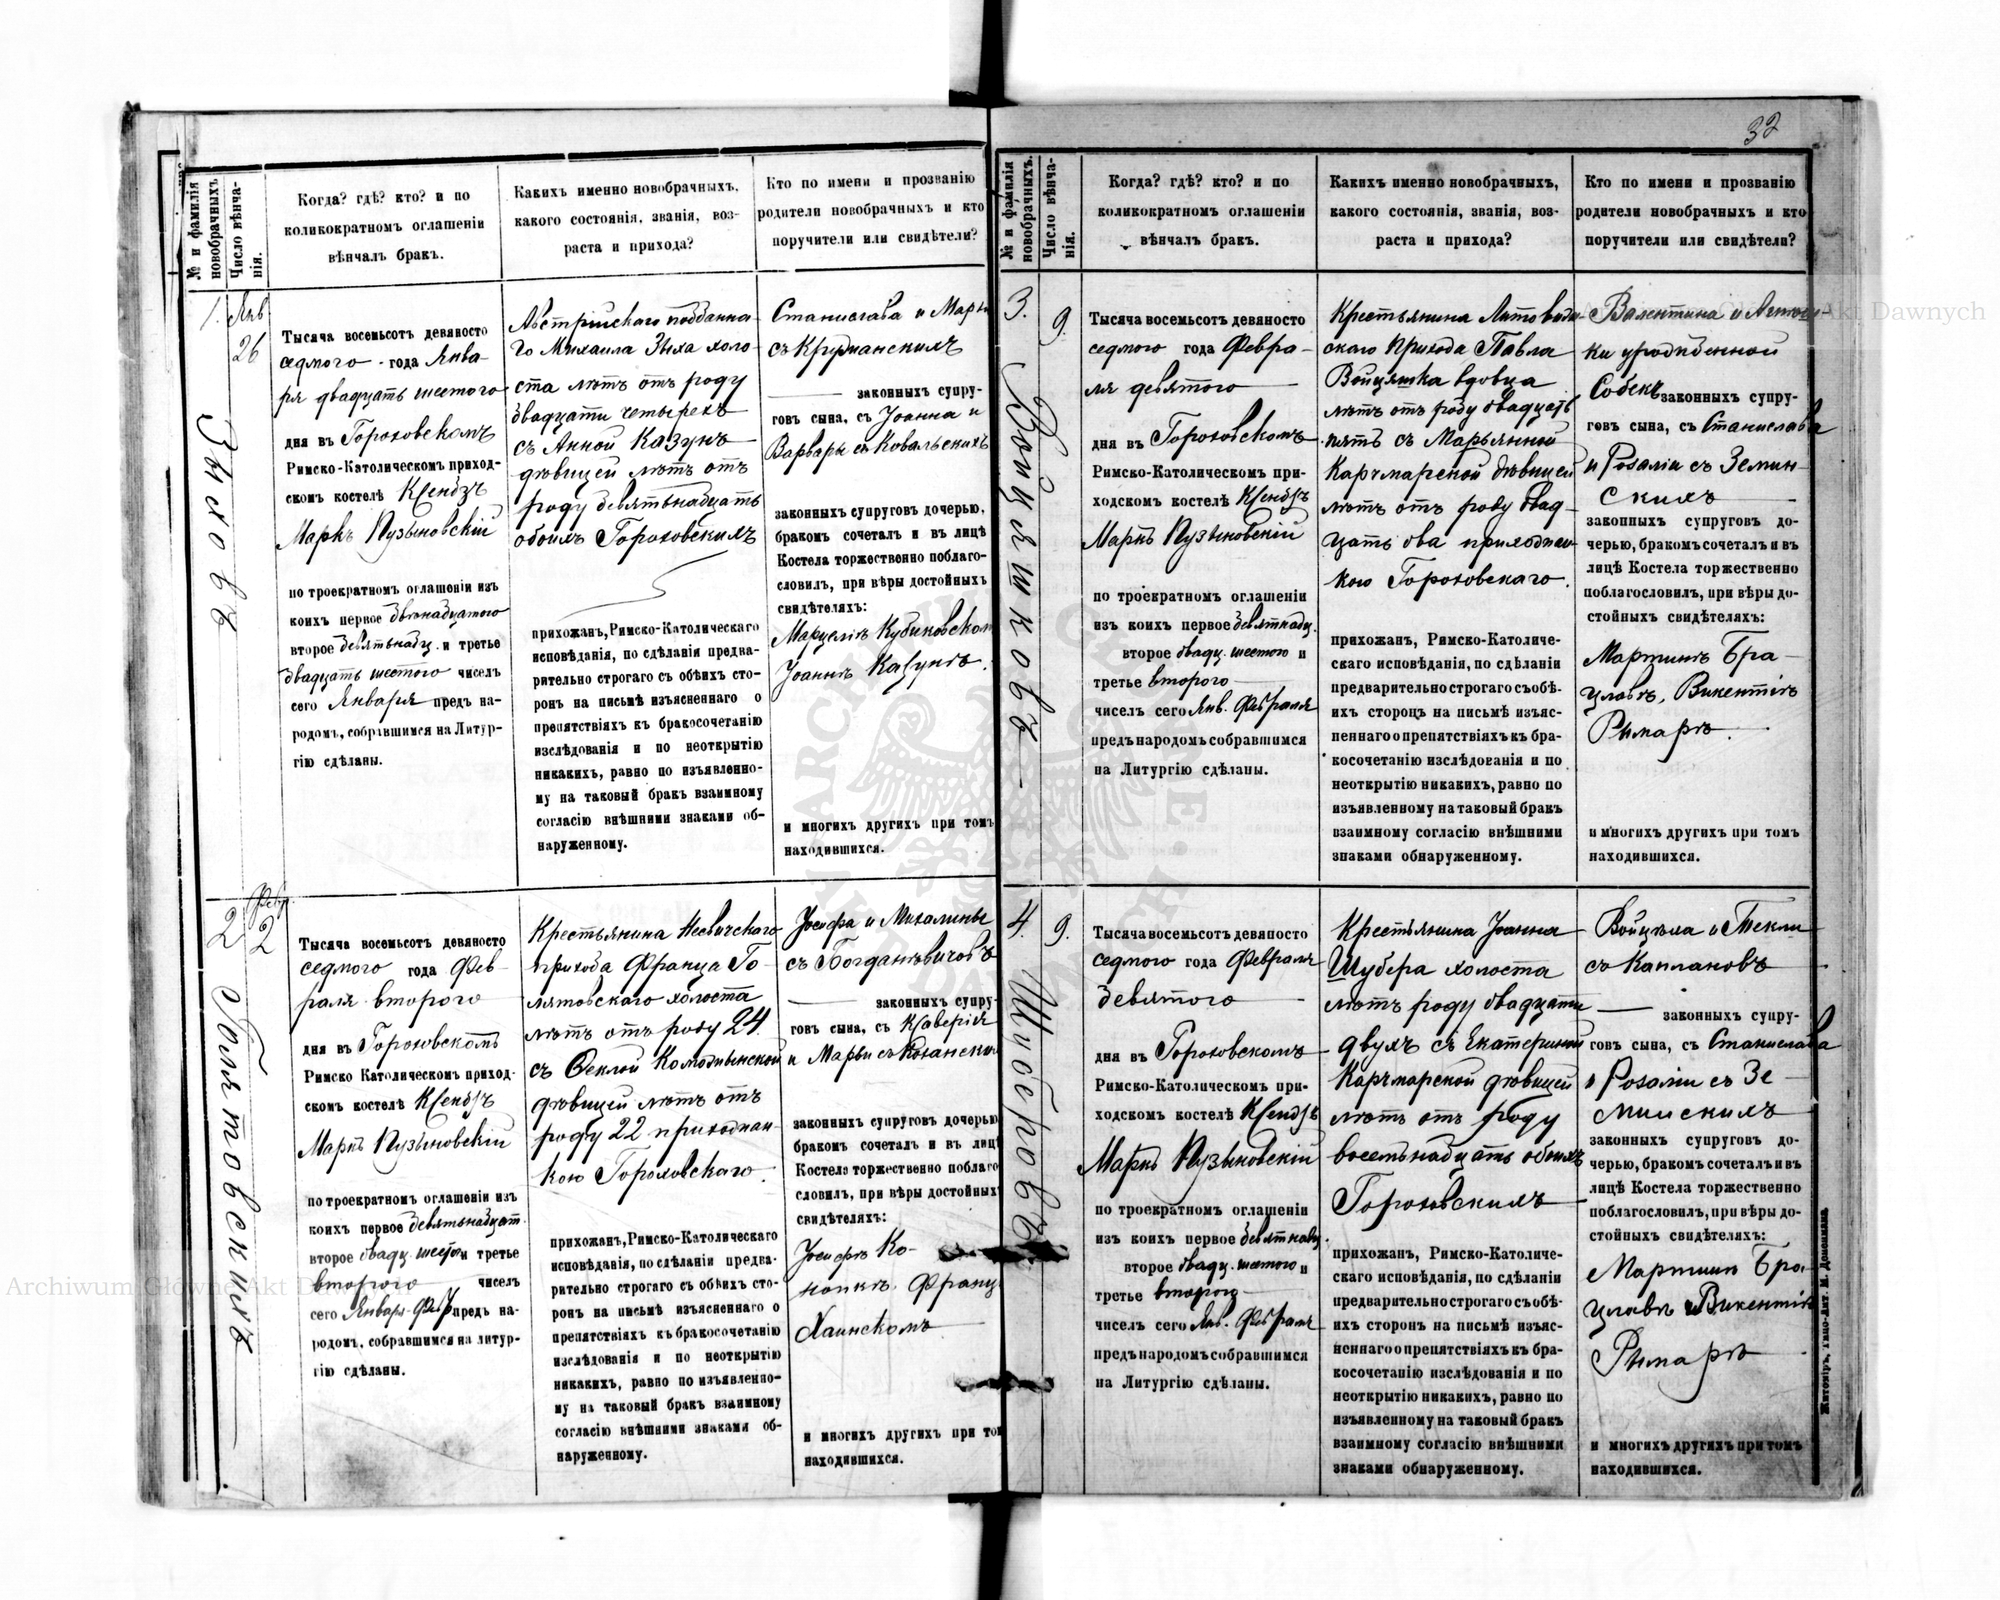 32
№ и фамилія новобрачныхъ
Число вѣнча-
нія.
Когда? гдѣ? кто? и по
коликократномъ оглашеніи
вѣнчалъ бракъ.
Какихъ именно новобрачныхъ,
какого состоянія, званія, воз-
раста и прихода?
Кто по имени и прозванію
родители новобрачныхъ и кто
поручители или свидѣтели?
1.
Янв
26
Зыховъ
Тысяча восемьсотъ девяносто
седмого года Янва-
ря двадцать шестого
дня въ Гороховскомъ
Римско-Католическомъ приход-
скомъ костелѣ Ксендзъ
Маркъ Пузыновскій
по троекратномъ оглашеніи изъ
коихъ первое двенадцатого
второе девятьнадц. и третье
двадцать шестого чиселъ
сего Января предъ на-
родомъ, собравшимся на Литур-
гію сдѣланы.
Австрійскаго поддана-
го Михаила Зыха холо-
ста лѣтъ отъ роду
двадцати четырехъ
съ Анной Казунъ
дѣвицей лѣтъ отъ
роду девятьнадцать
обоихъ Гороховскихъ
прихожанъ, Римско-Католическаго
исповѣданія, по сдѣланіи предва-
рительно строгаго съ обѣихъ сто-
ронъ на письмѣ изъясненнаго о
препятствіяхъ къ бракосочетанію
изслѣдованія и по неоткрытію
никакихъ, равно по изъявленно-
му на таковый бракъ взаимному
согласію внѣшними знаками об-
наруженному.
Станислава и Марьи
съ Крумпанскихъ
законныхъ супру-
говъ сына, съ Іоанна и
Варвары съ Ковальскихъ
законныхъ супруговъ дочерью,
бракомъ сочеталъ и въ лицѣ
Костела торжественно поблаго-
словилъ, при вѣры достойныхъ
свидѣтеляхъ:
Марцеліѣ Кубиковскомъ
Іоаннѣ Казунѣ.
и многихъ другихъ при томъ
находившихся.
2
Февр.
2
Голятовскихъ
Тысяча восемьсотъ девяносто
седмого года Фев-
раля второго
дня въ Гороховскомъ
Римско Католическомъ приход-
скомъ костелѣ Ксендзъ
Маркъ Пузыновскій
по троекратномъ оглашеніи изъ
коихъ первое девятьнадцат.
второе двадц. шестого и третье
второго чиселъ
сего Января-Февр предъ на-
родомъ, собравшимся на литур-
гію сдѣланы.
Крестьянина Несвичскаго
прихода Франца Го-
лятовскаго холоста
лѣтъ отъ роду 24.
съ Феклой Комодзинской
дѣвицей лѣтъ отъ
роду 22 прихожан-
кою Гороховскаго.
прихожанъ, Римско-Католическаго
исповѣданія, по сдѣланіи предва-
рительно строгаго съ обѣихъ сто-
ронъ на письмѣ изъясненнаго о
препятствіяхъ къ бракосочетанію
изслѣдованія и по неоткрытію
никакихъ, равно по изъявленно-
му на таковый бракъ взаимному
согласію внѣшними знаками об-
наруженному.
Іосифа и Михалины
съ Богдановичовъ
законныхъ супру-
говъ сына, съ Ксаверія
и Марьи съ Коханских
законныхъ супруговъ дочерью
бракомъ сочеталъ и въ лицѣ
Костела торжественно поблаго
словилъ, при вѣры достойныхъ
свидѣтеляхъ:
Іосифѣ Ко-
нопкѣ. Франц
Хаинскомъ
и многихъ другихъ при том
находившихся.
№ и фамилія новобрачныхъ.
Число вѣнча-
нія.
Когда? гдѣ? кто? и по
коликократномъ оглашеніи
вѣнчалъ бракъ.
Какихъ именно новобрачныхъ,
какого состоянія, званія, воз-
раста и прихода?
Кто по имени и прозванію
родители новобрачныхъ и кто
поручители или свидѣтели?
3.
9.
Войцяшковъ
Тысяча восемьсотъ девяносто
седмого года Февра-
ля девятого
дня въ Гороховскомъ
Римско-Католическомъ при-
ходскомъ костелѣ Ксендзъ
Маркъ Пузыновскій
по троекратномъ оглашеніи
изъ коихъ первое девятнадц.
второе двадц. шестого и
третье второго
чиселъ сего Янв. Февраля
предъ народомъ собравшимся
на Литургію сдѣланы.
Крестьянина Литовиж-
скаго Прихода Павла
Войцяшка вдовца
лѣтъ отъ роду двадцать
пять съ Марьянной
Карчмарской дѣвицей
лѣтъ отъ роду двад-
цать два прихожан-
кою Гороховскаго.
прихожанъ, Римско-Католиче-
скаго исповѣданія, по сдѣланіи
предварительно строгаго съ обѣ-
ихъ сторонъ на письмѣ изъяс-
неннаго о препятствіяхъ къ бра-
косочетанію изслѣдованія и по
неоткрытію никакихъ, равно по
изъявленному на таковый бракъ
взаимному согласію внѣшними
знаками обнаруженному.
Валентина и
ки урожденной
Собекъ законныхъ супру-
говъ сына, съ Станислава
и Розаліи съ Земин-
скихъ
законныхъ супруговъ до-
черью, бракомъ сочеталъ и въ
лицѣ Костела торжественно
поблагословилъ, при вѣры до-
стойныхъ свидѣтеляхъ:
Мартинѣ Бра-
цлавѣ, Викентіѣ
Рымарѣ.
и многихъ другихъ при томъ
находившихся.
4.
9.
Шуберовъ
Тысяча восемьсотъ девяносто
седмого года Февраля
девятого
дня въ Гороховскомъ
Римско-Католическомъ при-
ходскомъ костелѣ Ксендзъ
Маркъ Пузыновскій
по троекратномъ оглашеніи
изъ коихъ первое девятнадц.
второе двадц. шестого и
третье второго
чиселъ сего Янв. Февраля
предъ народомъ собравшимся
на Литургію сдѣланы.
Крестьянина Іоанна
Шубера холоста
лѣтъ роду двадцати
двухъ съ Екатериной
Карчмарской дѣвицей
лѣтъ отъ роду
восемьнадцать обоихъ
Гороховскихъ
прихожанъ, Римско-Католиче-
скаго исповѣданія, по сдѣланіи
предварительно строгаго съ обѣ-
ихъ сторонъ на письмѣ изъяс-
неннаго о препятствіяхъ къ бра-
косочетанію изслѣдованія и по
неоткрытію никакихъ, равно по
изъявленному на таковый бракъ
взаимному согласію внѣшними
знаками обнаруженному.
Войцѣха и Текли
съ Каплановъ
законныхъ супру-
говъ сына, съ Станислава
и Розаліи съ Зе-
минскихъ
законныхъ супруговъ до-
черью, бракомъ сочеталъ и въ
лицѣ Костела торжественно
поблагословилъ, при вѣры до-
стойныхъ свидѣтеляхъ:
Мартинѣ Бра-
цлавѣ и Викентіѣ
Рымарѣ
и многихъ другихъ при томъ
находившихся.
Житоміръ, типо-лит. М. Дененмана.
Archiwum Główne Akt Dawnych
Archiwum Główne Akt Dawnych
ARCHIWUM GŁÓWNE · AKT DAWNYCH